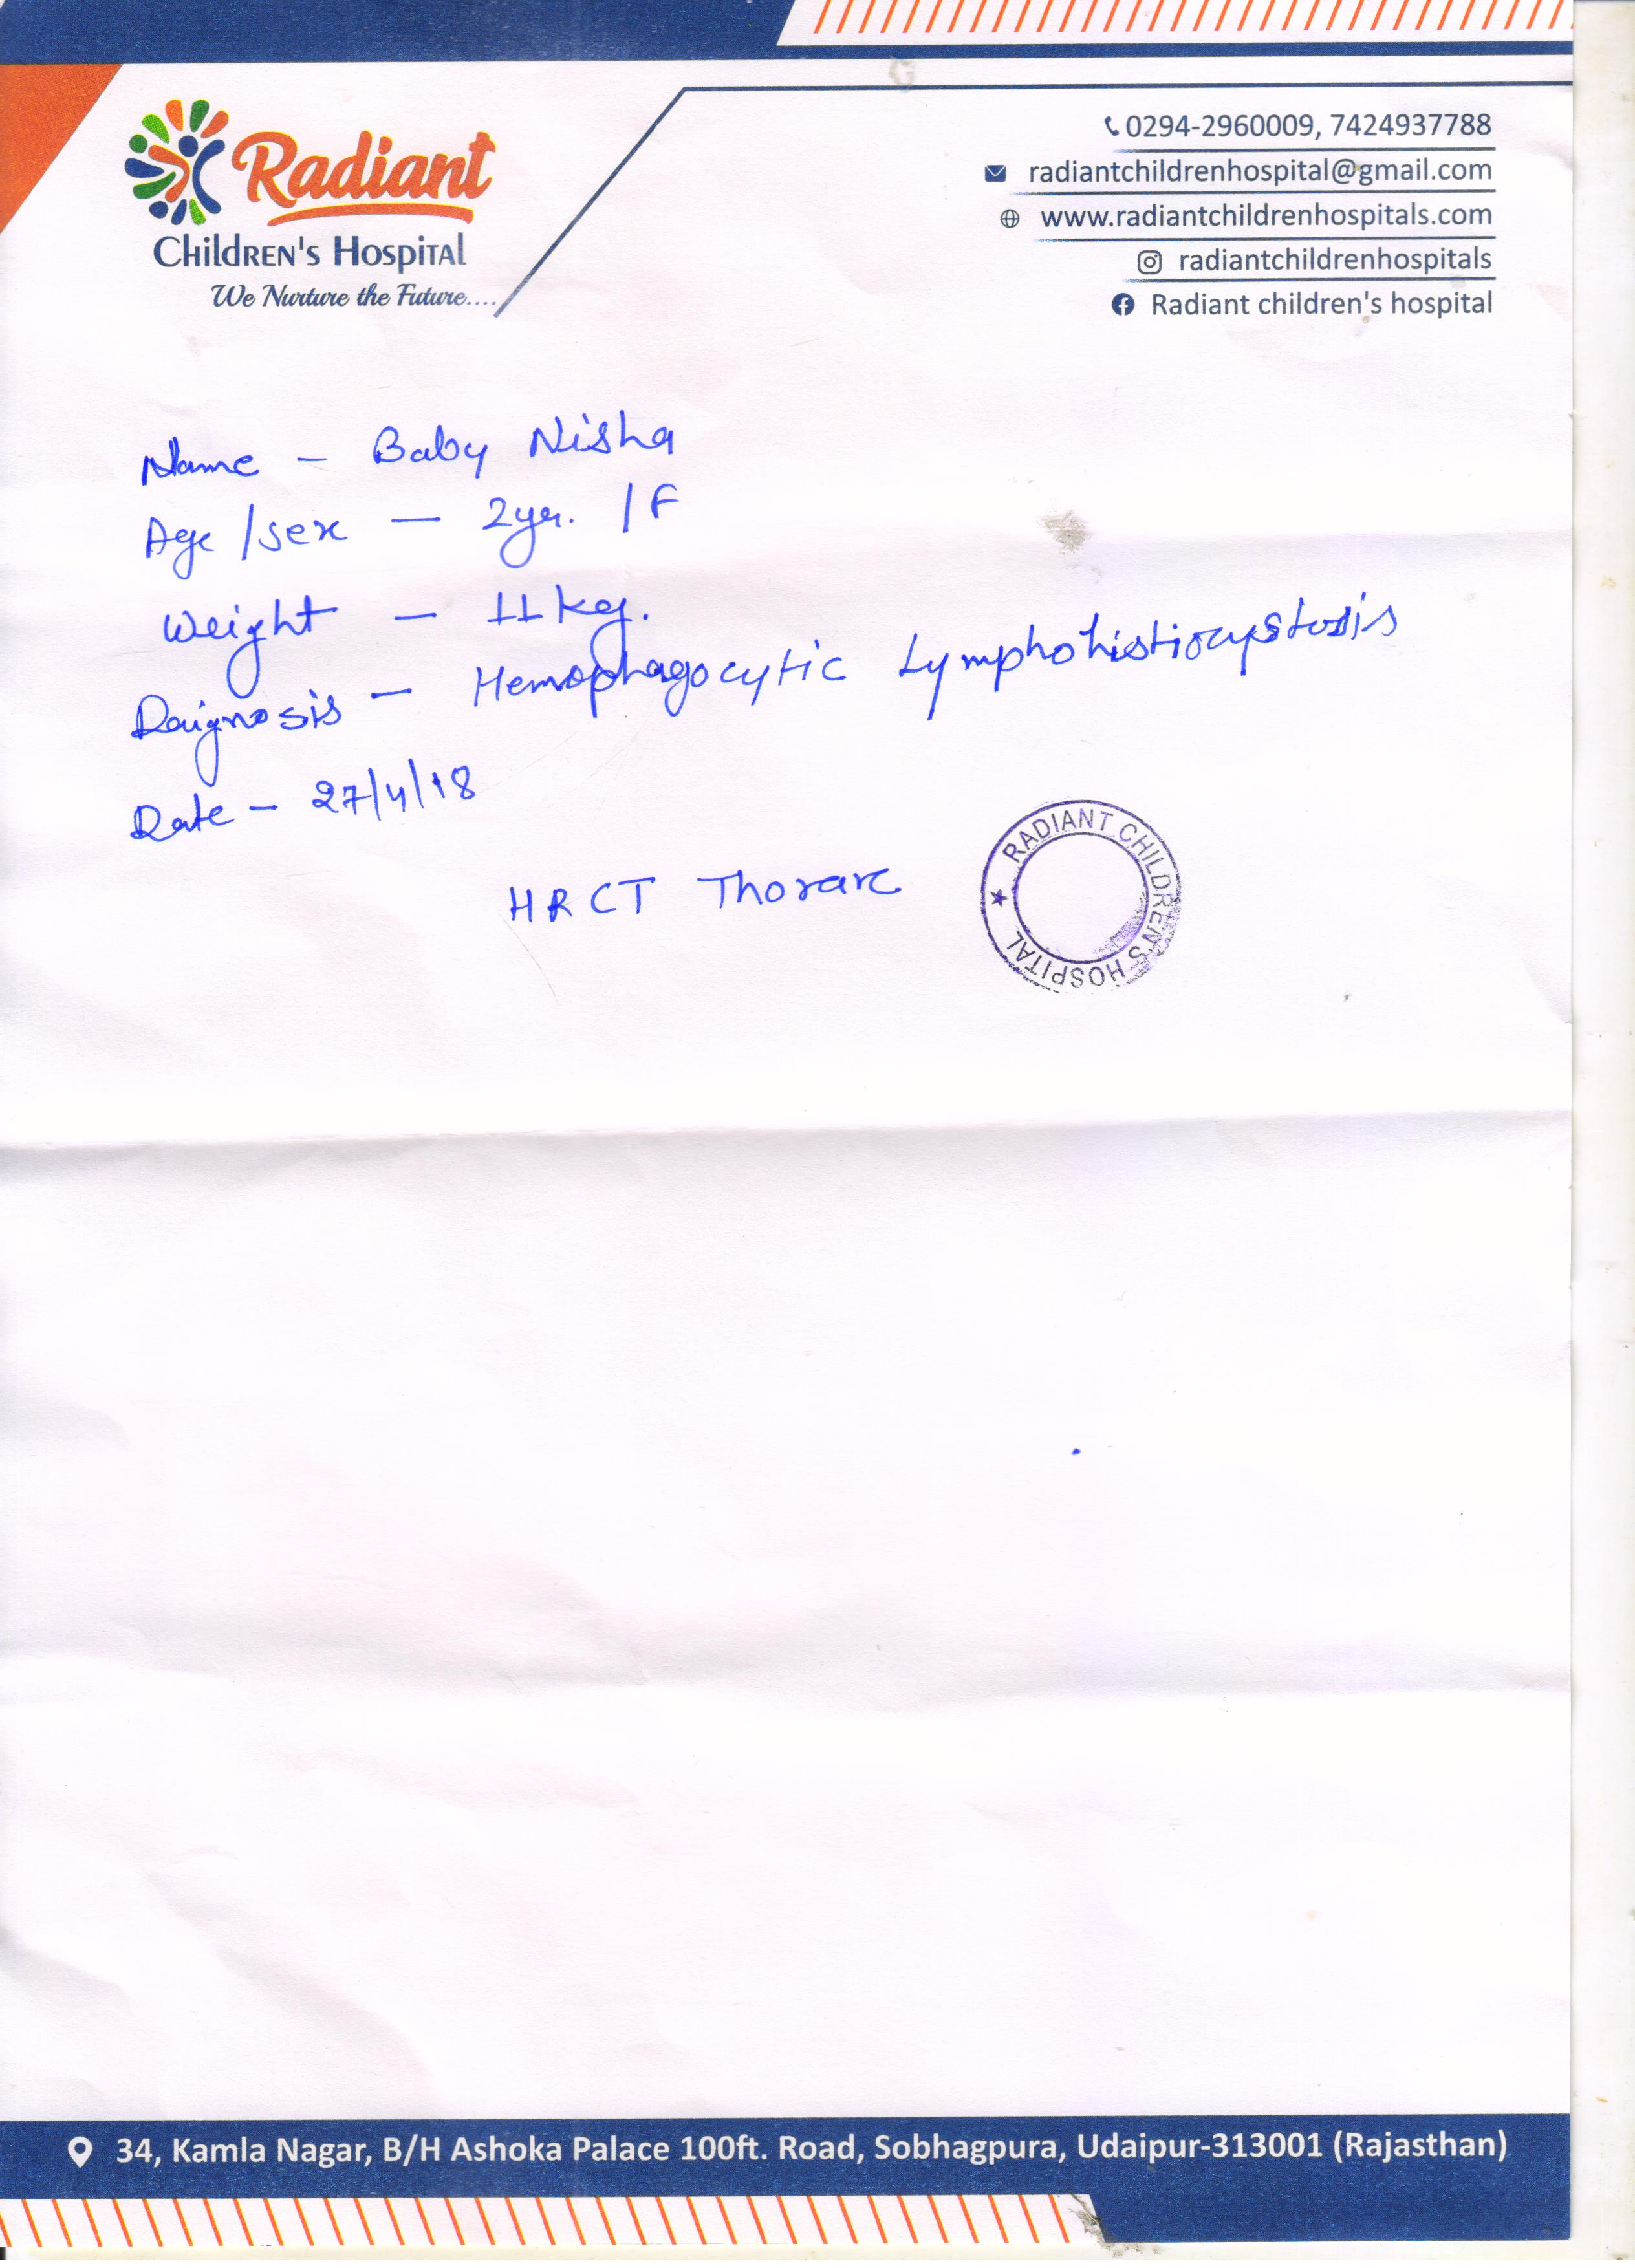 Radiant
Children's Hospital
We Nurture the Future....
0294-2960009, 7424937788
radiantchildrenhospital@gmail.com
www.radiantchildrenhospitals.com
radiantchildrenhospitals
Radiant children's hospital
Name - Baby Nisha
Age /sex - 2yr. /F
Weight - 11 kg.
Daignosis - Hemophagocytic Lymphohistiocystosis
Date - 27/4/18
HRCT Thorax
RADIANT CHILDREN'S HOSPITAL ★
34, Kamla Nagar, B/H Ashoka Palace 100ft. Road, Sobhagpura, Udaipur-313001 (Rajasthan)